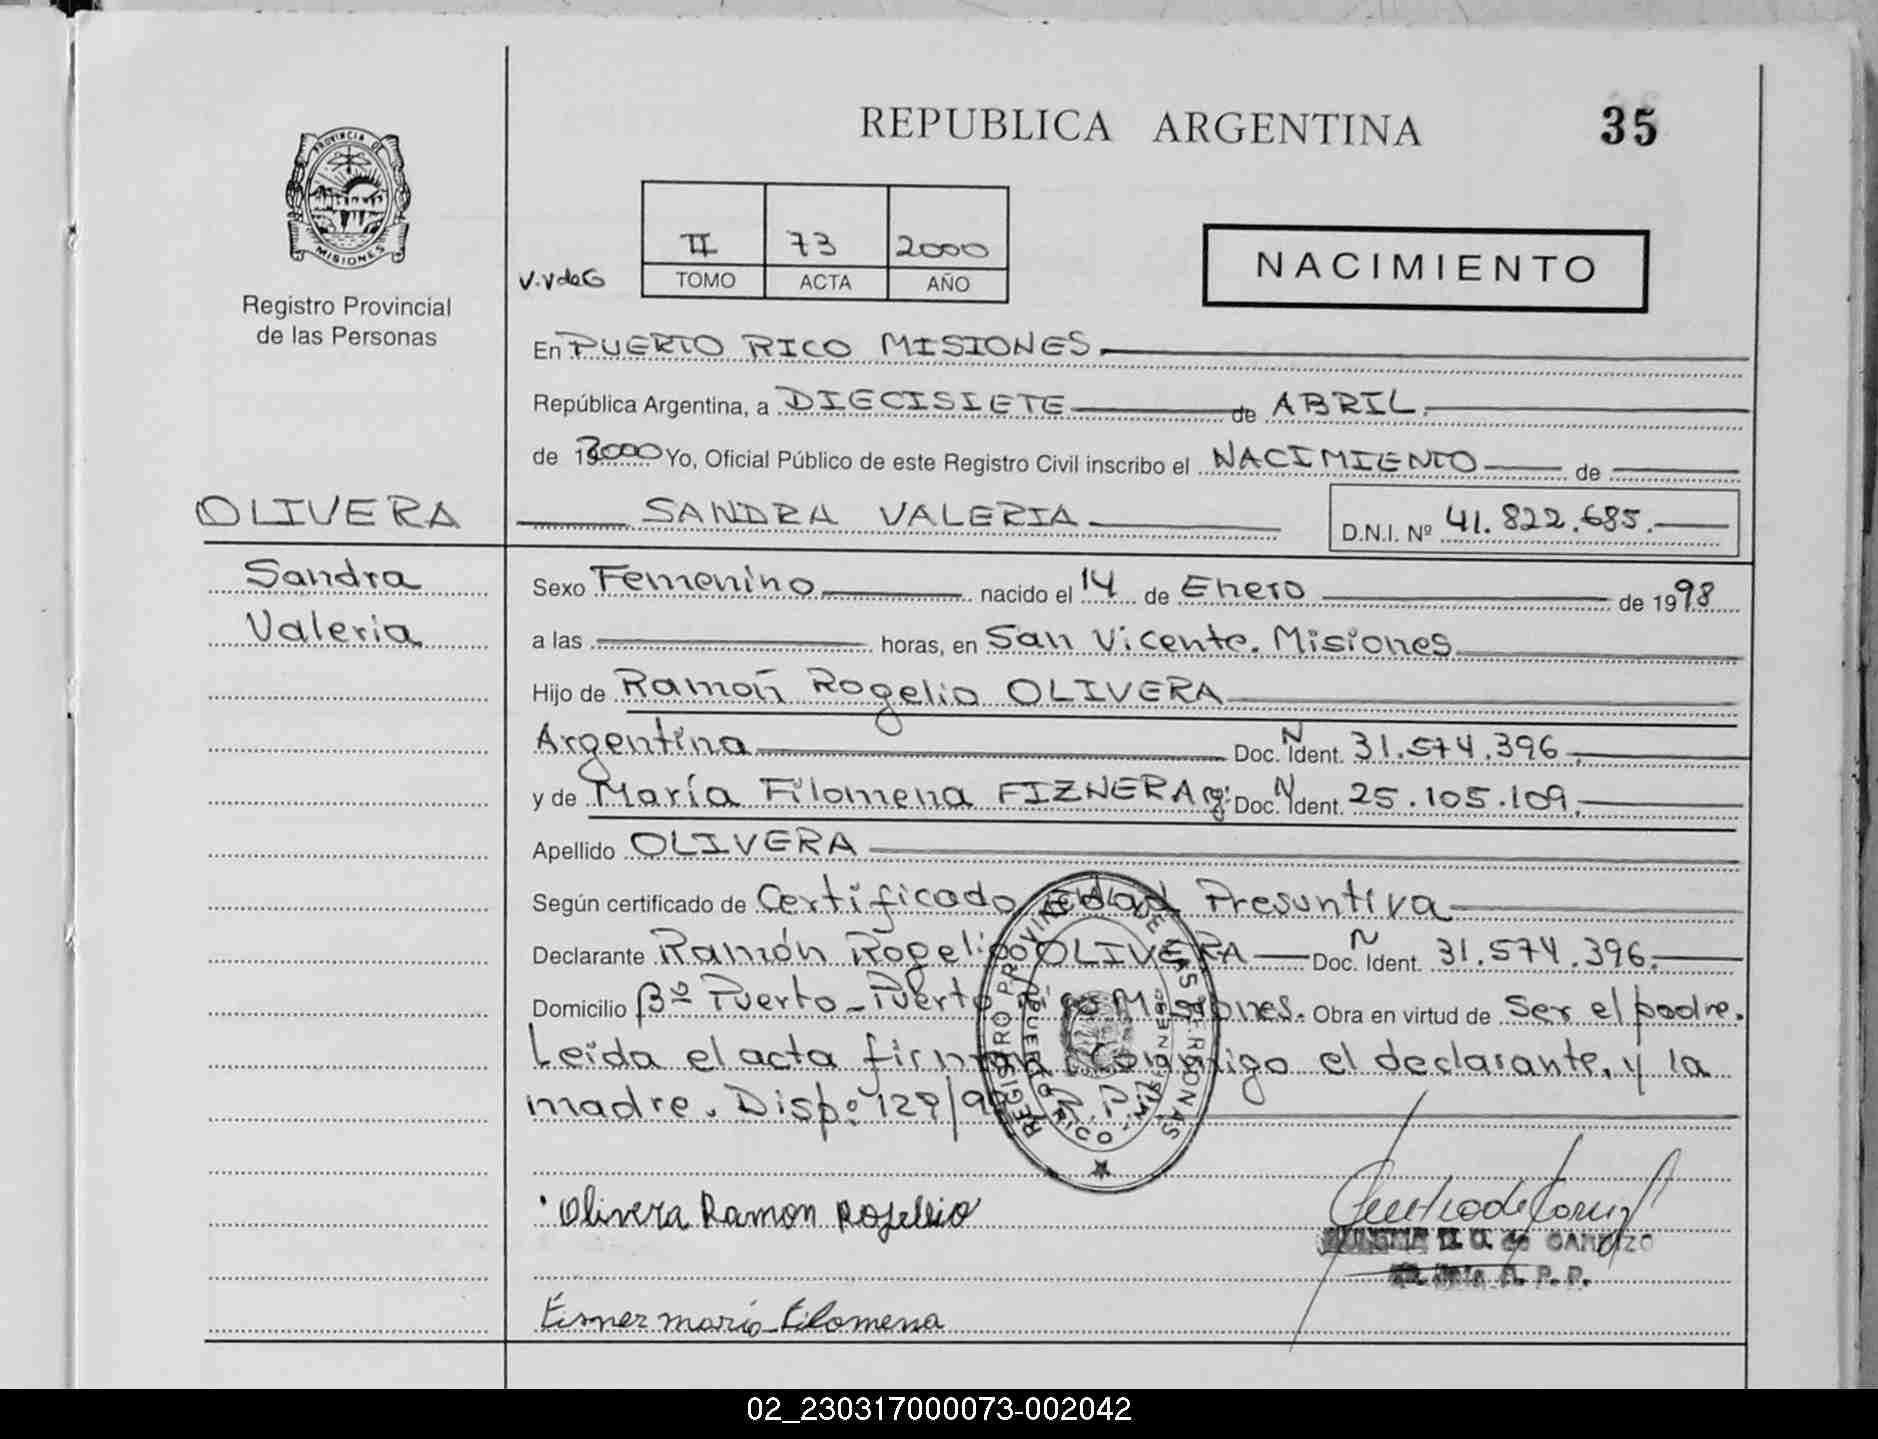 REPUBLICA ARGENTINA
35
PROVINCIA DE
MISIONES
Registro Provincial
de las Personas
V.VdeG
II 73 2000
TOMO ACTA AÑO
NACIMIENTO
En PUERTO RICO MISIONES
República Argentina, a DIECISIETE de ABRIL.
de 2000 Yo, Oficial Público de este Registro Civil inscribo el NACIMIENTO de
OLIVERA
SANDRA VALERIA
D.N.I. Nº 41.822.685.
Sandra
Valeria
Sexo Femenino nacido el 14 de Enero de 1998
a las horas, en San Vicente. Misiones
Hijo de Ramón Rogelio OLIVERA
Argentina Doc. N Ident. 31.574.396.
y de María Filomena FIZNER Arg: Doc. N Ident. 25.105.109.
Apellido OLIVERA
Según certificado de Certificado edad Presuntiva
Declarante Ramón Rogelio OLIVERA Doc. N Ident. 31.574.396.
Domicilio Bº Puerto-Puerto Rico Misiones. Obra en virtud de Ser el padre.
Leída el acta firman Conmigo el declarante, y la
madre. Disp: 129/99 R.P.P.
REGISTRO PROVINCIAL DE LAS PERSONAS
PUERTO RICO - MISIONES
Olivera Ramon Rogelio
de CARRIZO
R. P. P.
Fisner maria Filomena
02_230317000073-002042